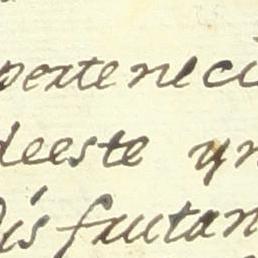 perteneci
deeste yn
disfrutan